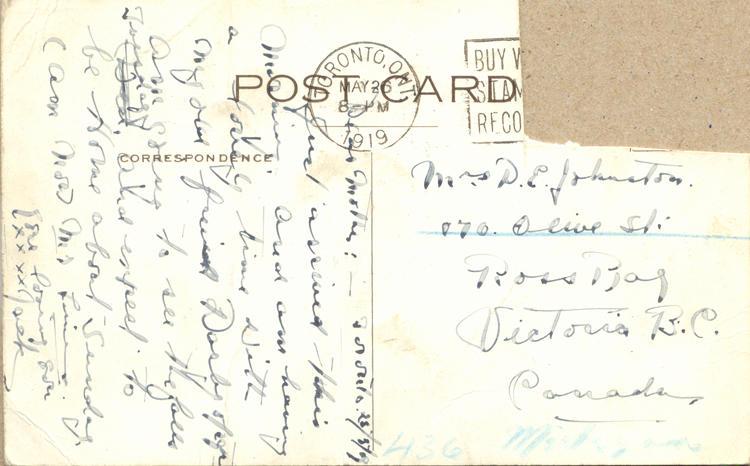 POST CARD
TORONTO, ONT.
MAY 26
8 - PM
1919
BUY
STAM
RECO
CORRESPONDENCE
Toronto. 26/5/19
Dear Mother: -
Just arrived this
Morning and am having
a lovely time with
My friend
am going to see the falls
Tuesday and expect to
be Home about Sunday.
Your loving son
xxxx Jack
Mrs D. E. Johnston.
170. Olive St:
Ross Bay
Victoria B.C.
Canada,
436